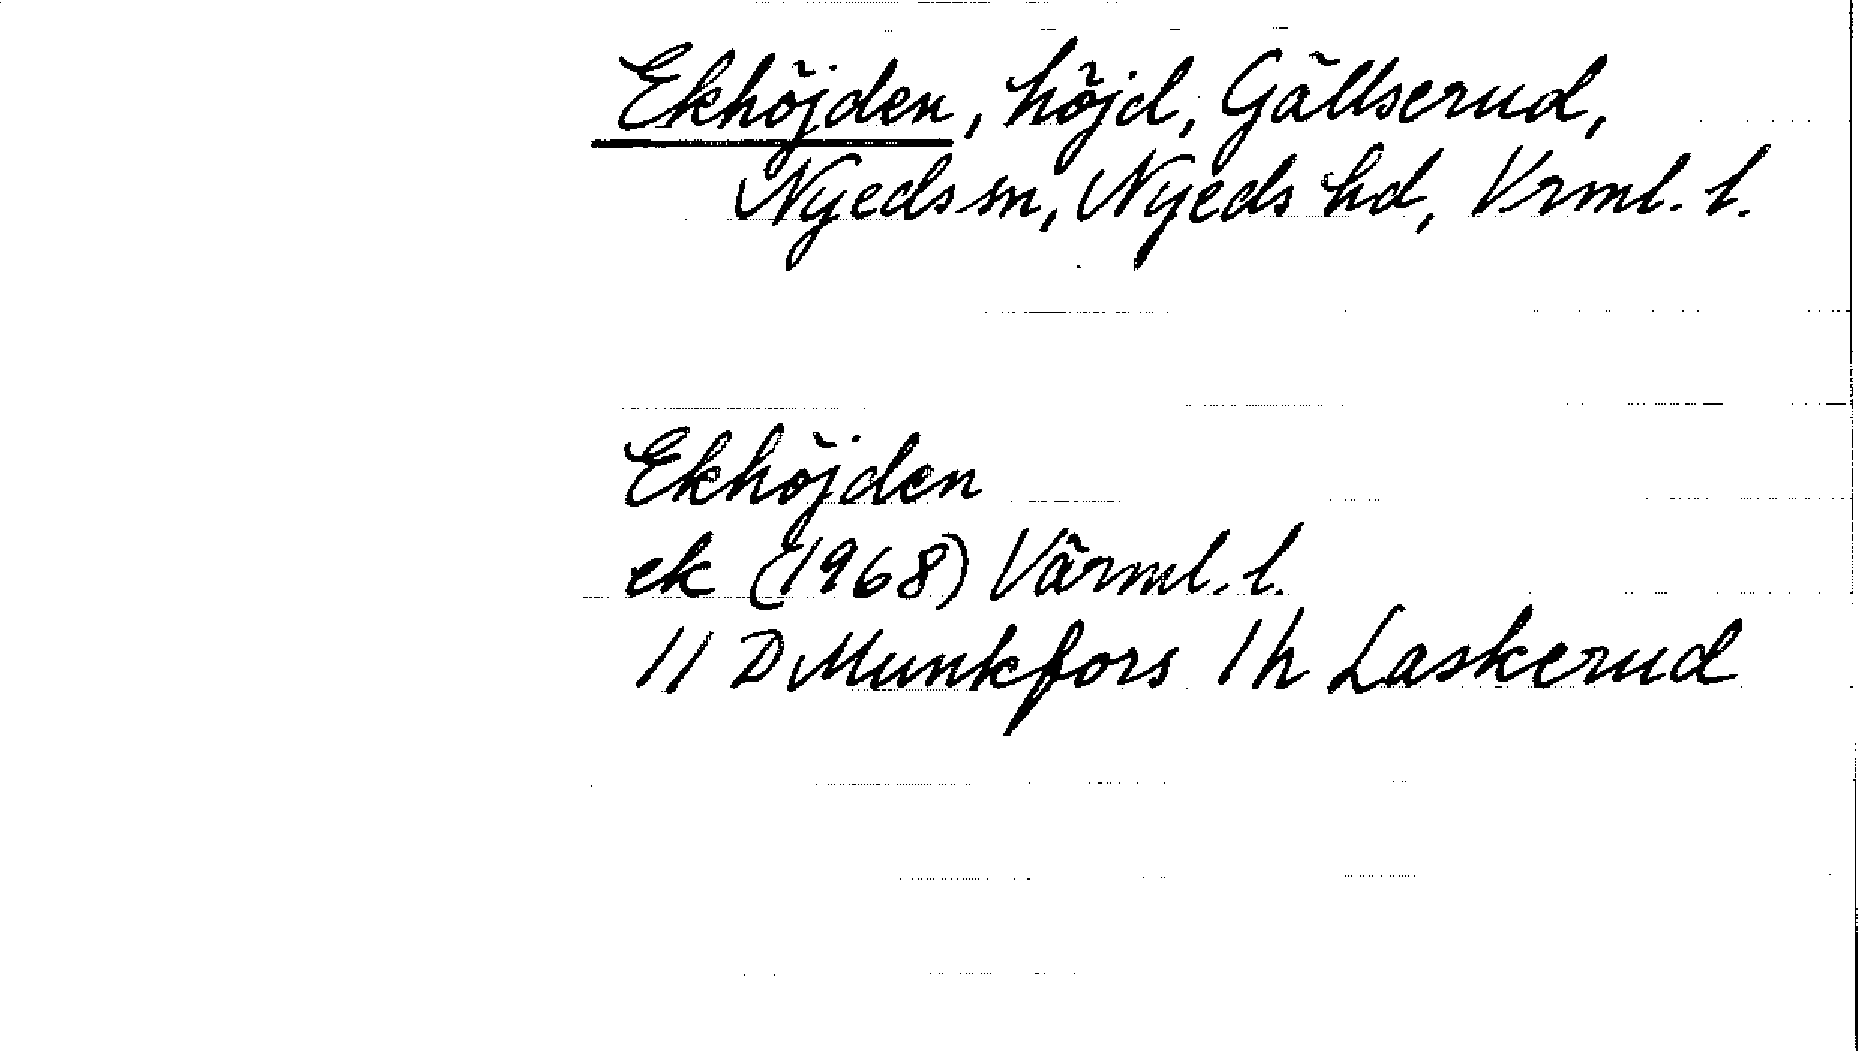 Ekhöjden, höjd, Gällserud,
Nyeds sn, Nyeds hd, Vrml. l.
Ekhöjden
ek (1968) Värml. l.
11 D Munkfors 1 h Laskerud